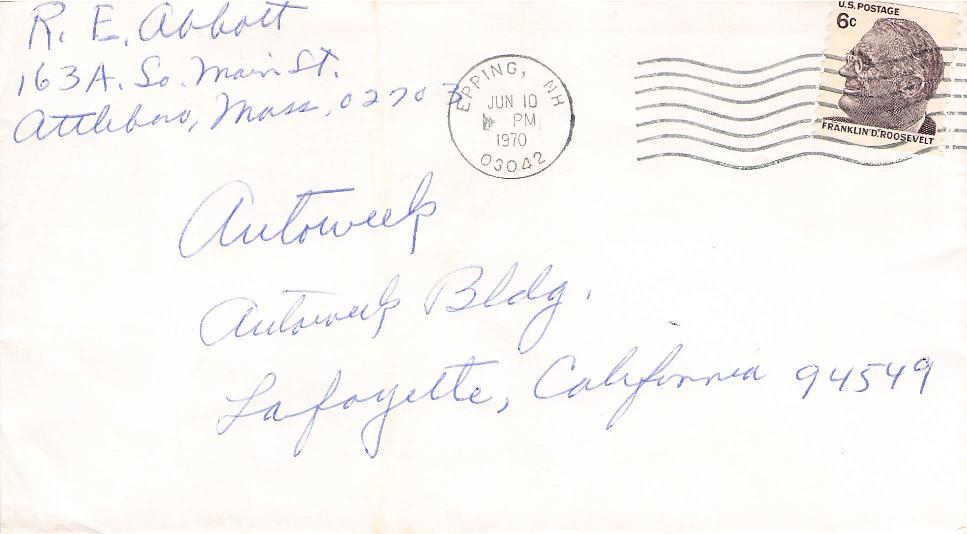 R. E. Abbott
163A. So. Main St.
Attleboro, Mass, 02703
EPPING, NH
JUN 10
PM
1970
03042
U.S. POSTAGE
6c
FRANKLIN D. ROOSEVELT
Autoweek
Autoweek Bldg.
Lafayette, California 94549